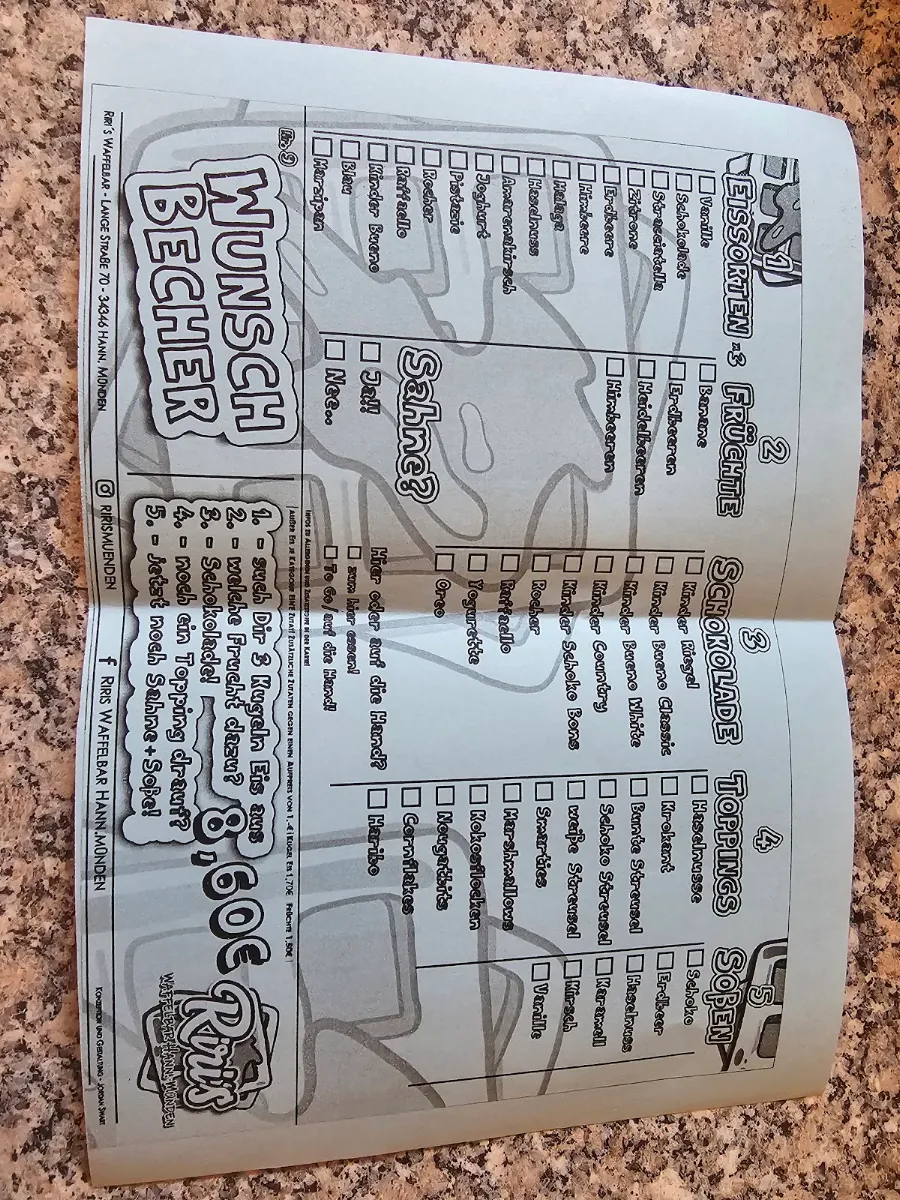 1
EISSORTEN x3
Vanille
Schokolade
Stracciatella
Zitrone
Erdbeere
Himbeere
Malaga
Haselnuss
Amarenakirsch
Joghurt
Pistazie
Rocher
Raffaello
Kinder Bueno
Blau
Marzipan
2
FRÜCHTE
Banane
Erdbeeren
Heidelbeeren
Himbeeren
Sahne?
Ja!!
Nee..
3
SCHOKOLADE
Kinder Riegel
Kinder Bueno Classic
Kinder Bueno White
Kinder Country
Kinder Schoko Bons
Rocher
Raffaello
Yogurette
Oreo
Hier oder auf die Hand?
zum hier essen!
To Go/auf die Hand!
4
TOPPINGS
Haselnüsse
Krokant
Bunte Streusel
Schoko Streusel
weiße Streusel
Smarties
Marshmallows
Kokosflocken
Nougatbits
Cornflakes
Haribo
5
SOßEN
Schoko
Erdbeer
Haselnuss
Karamell
Kirsch
Vanille
INFOS ZU ALLERGENEN UND ZUSATZSTOFFE IN DER KARTE!
(AUßER EIS JE KATEGORIE EINE ZUTAT! ZUSÄTZLICHE ZUTATEN GEGEN EINEN AUFPREIS VON 1,-€ | KUGEL EIS 1,70€ FRÜCHTE 1,50€)
Nr. 9
WUNSCH
BECHER
1. - such Dir 3 Kugeln Eis aus
2. - welche Frucht dazu?
3. - Schokolade!
4. - noch ein Topping drauf?
5. - Jetzt noch Sahne+Soße!
8,60€
Riri's
WAFFELBAR HANN.MÜNDEN
RIRI'S WAFFELBAR - LANGE STRAßE 70 - 34346 HANN. MÜNDEN
RIRISMUENDEN
f RIRIS WAFFELBAR HANN.MÜNDEN
KONZEPTION UND GESTALTUNG - JORDAN SWART